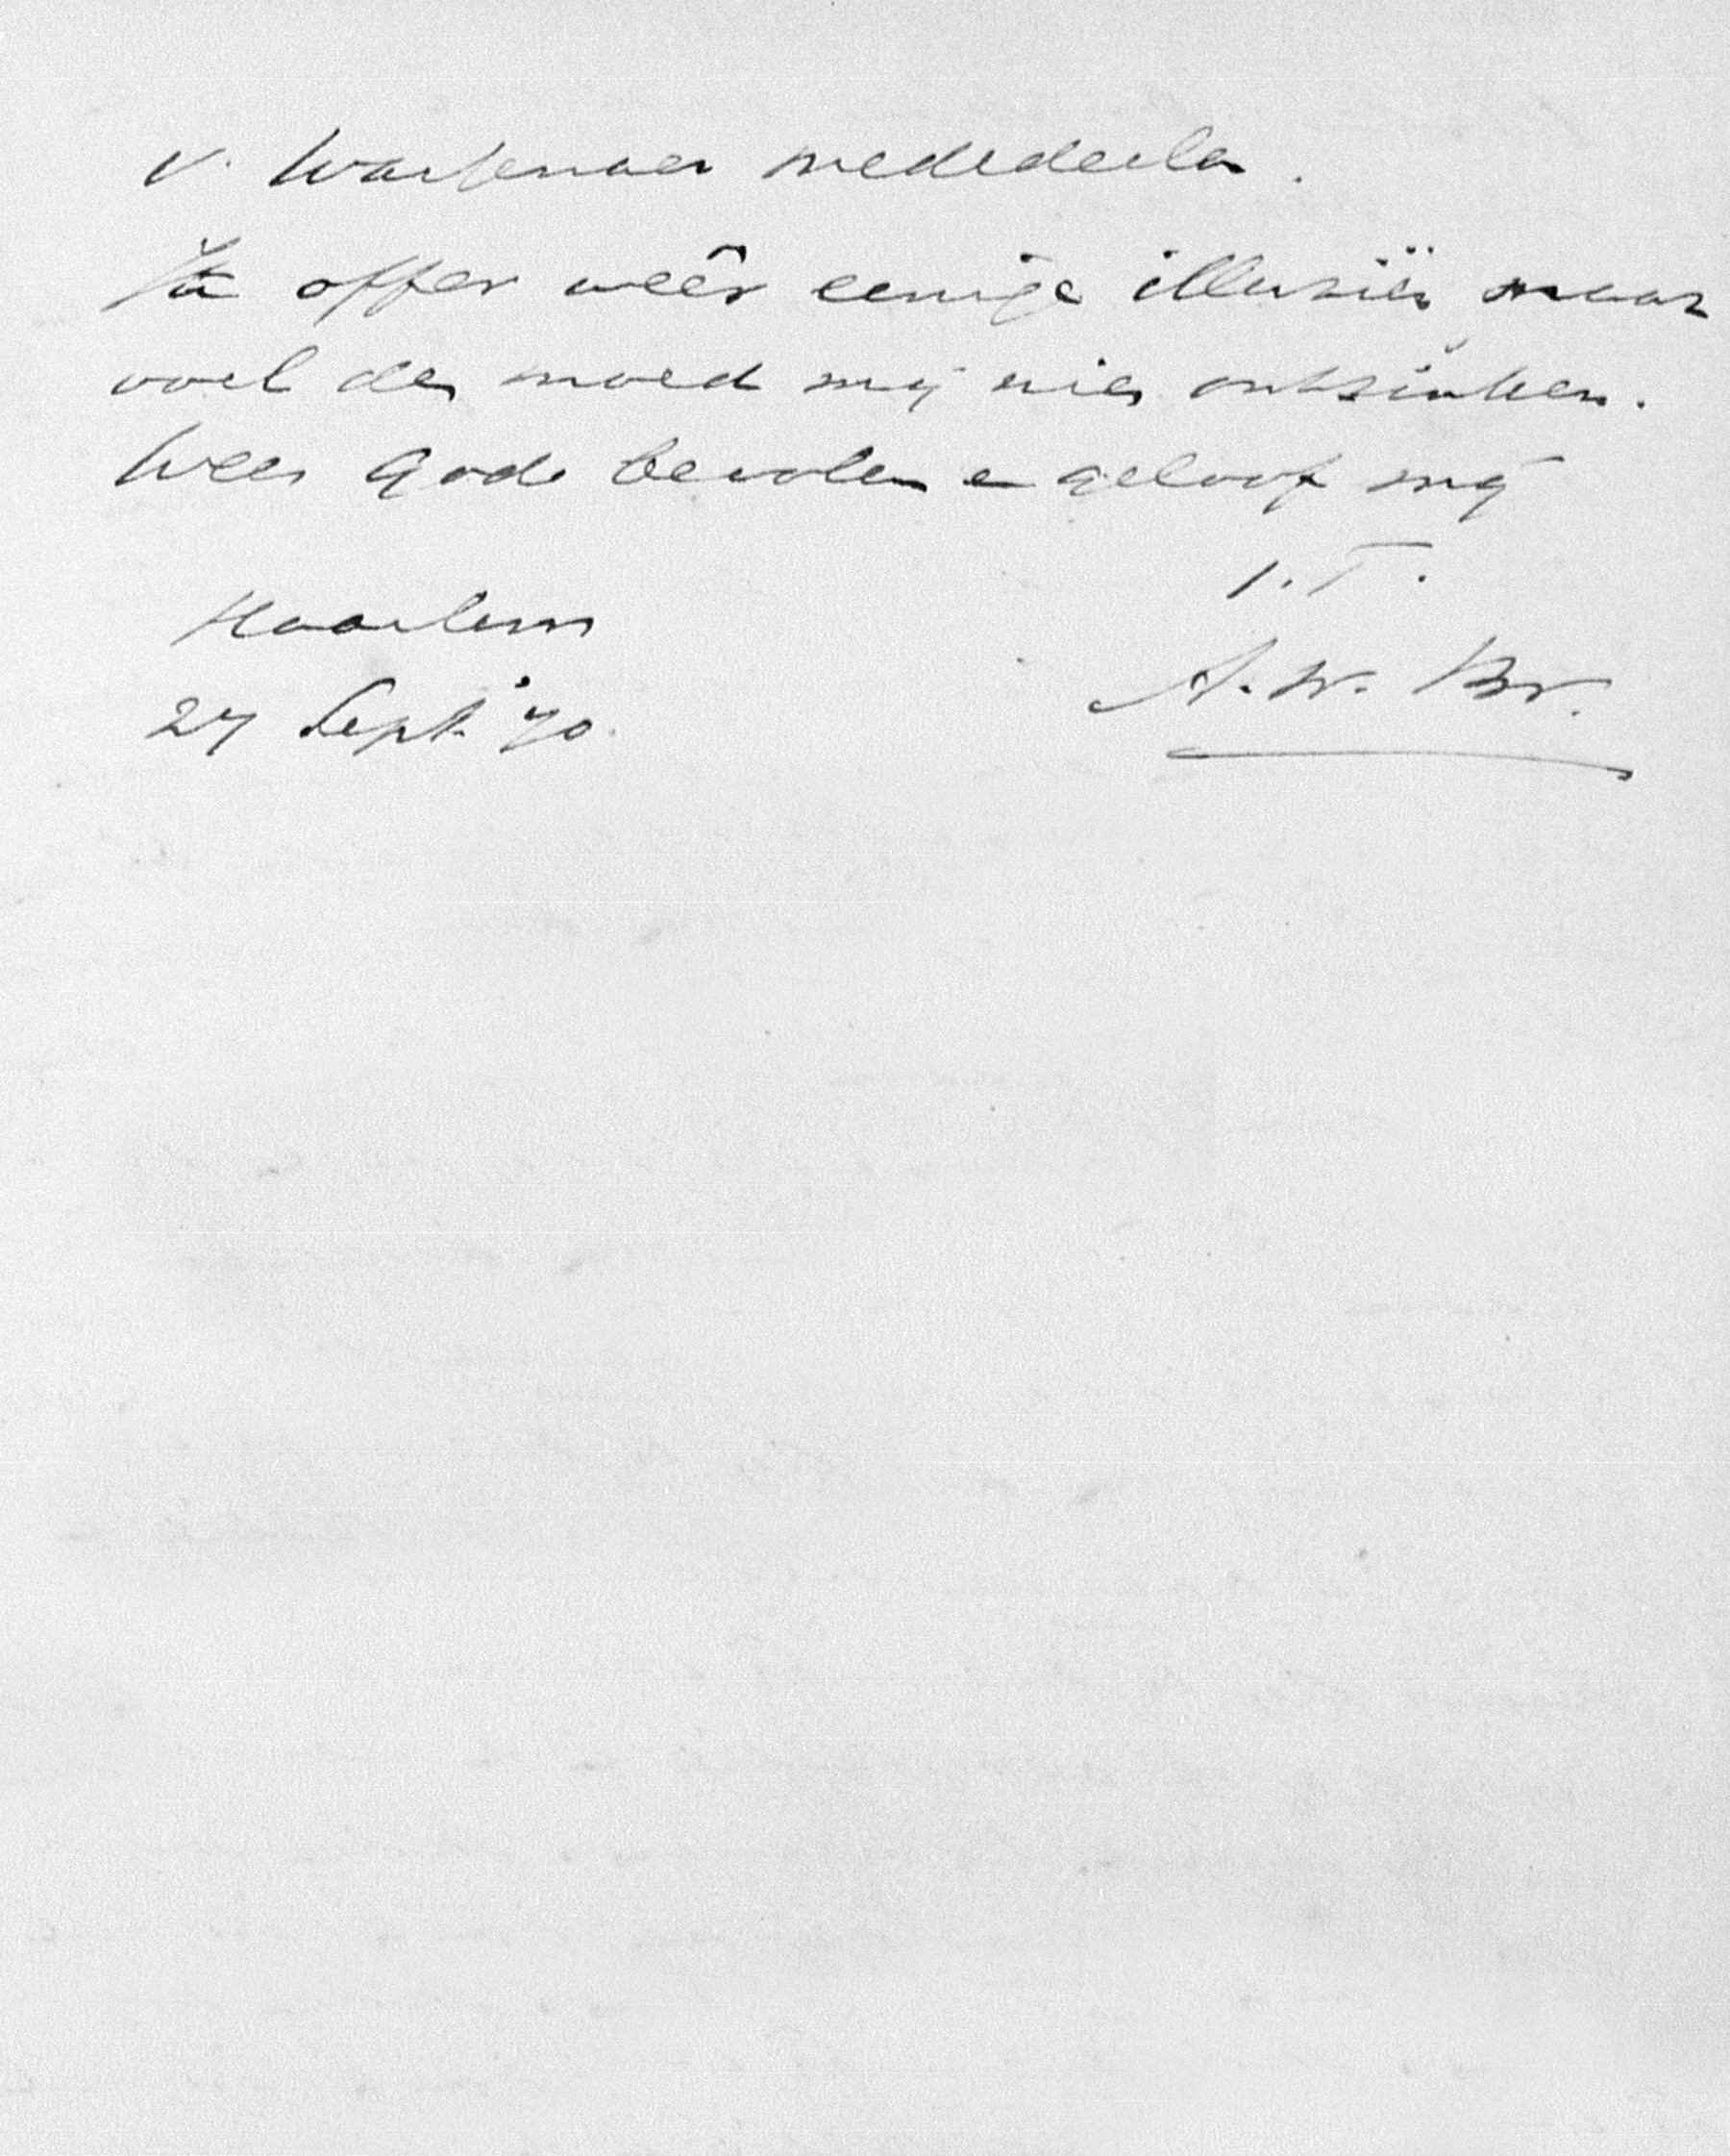 v. Wassenaer mededeelen.
Ik offer weêr eenige illusiën maar
voel den moed mij niet ontzinken.
Wees Gode bevolen en geloof mij
t.t.
Haarlem
A. W. Br.
27 Sept. '70.